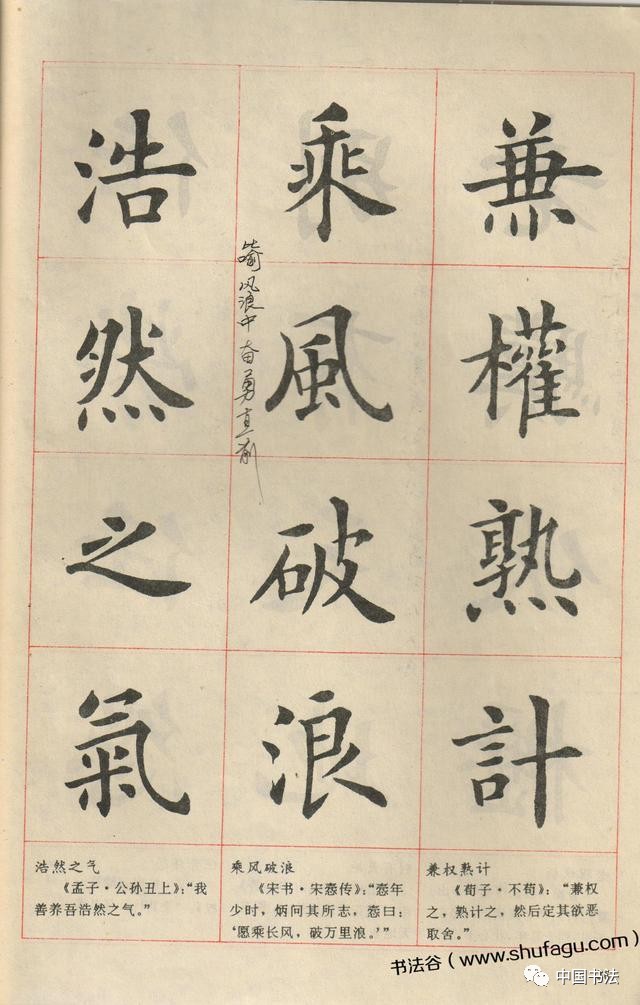 兼權熟計
乘風破浪
喻风浪中奋勇直前
浩然之氣
兼权熟计
《荀子·不苟》：“兼权
之，熟计之，然后定其欲恶
取舍。”
乘风破浪
《宋书·宋悫传》：“悫年
少时，炳问其所志，悫曰：
‘愿乘长风，破万里浪。’”
浩然之气
《孟子·公孙丑上》：“我
善养吾浩然之气。”
书法谷（www.shufagu.com）
中国书法